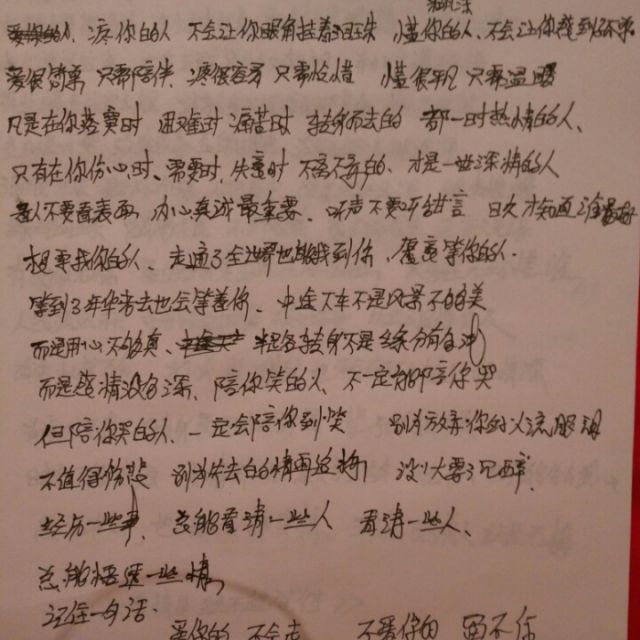 疼你的人 不会让你眼角挂着泪珠 懂你的人、不会让你感到
爱很简单 只需陪伴 疼很容易 只要怜惜 懂很平凡 只要温暖
凡是在你落寞时 困难时 痛苦时 转身而去的 都一时热情的人、
只有在你伤心时、需要时、失意时 不离不弃的、才是一世深情的人
看人不要看表面 内心真诚最重要、听声不要听甜言 日久才知道谁最好
想要找你的人、走遍了全世界也能找到你、愿意等你的人.
等到了年华老去也会等着你、中途下车不是风景不够美
而是用心不够真、半路转身不是缘分有
而是感情没有深、陪你笑的人、不一定能陪你哭
但陪你哭的人、一定会陪你到笑 别为放弃你的人流眼泪
不值得伤悲 别为失去的情再 没
经历一些事、总能看清一些人 看清一些人、
总能悟透一些情、
记住一句话:
爱你的 不会走 不爱你的 留不住